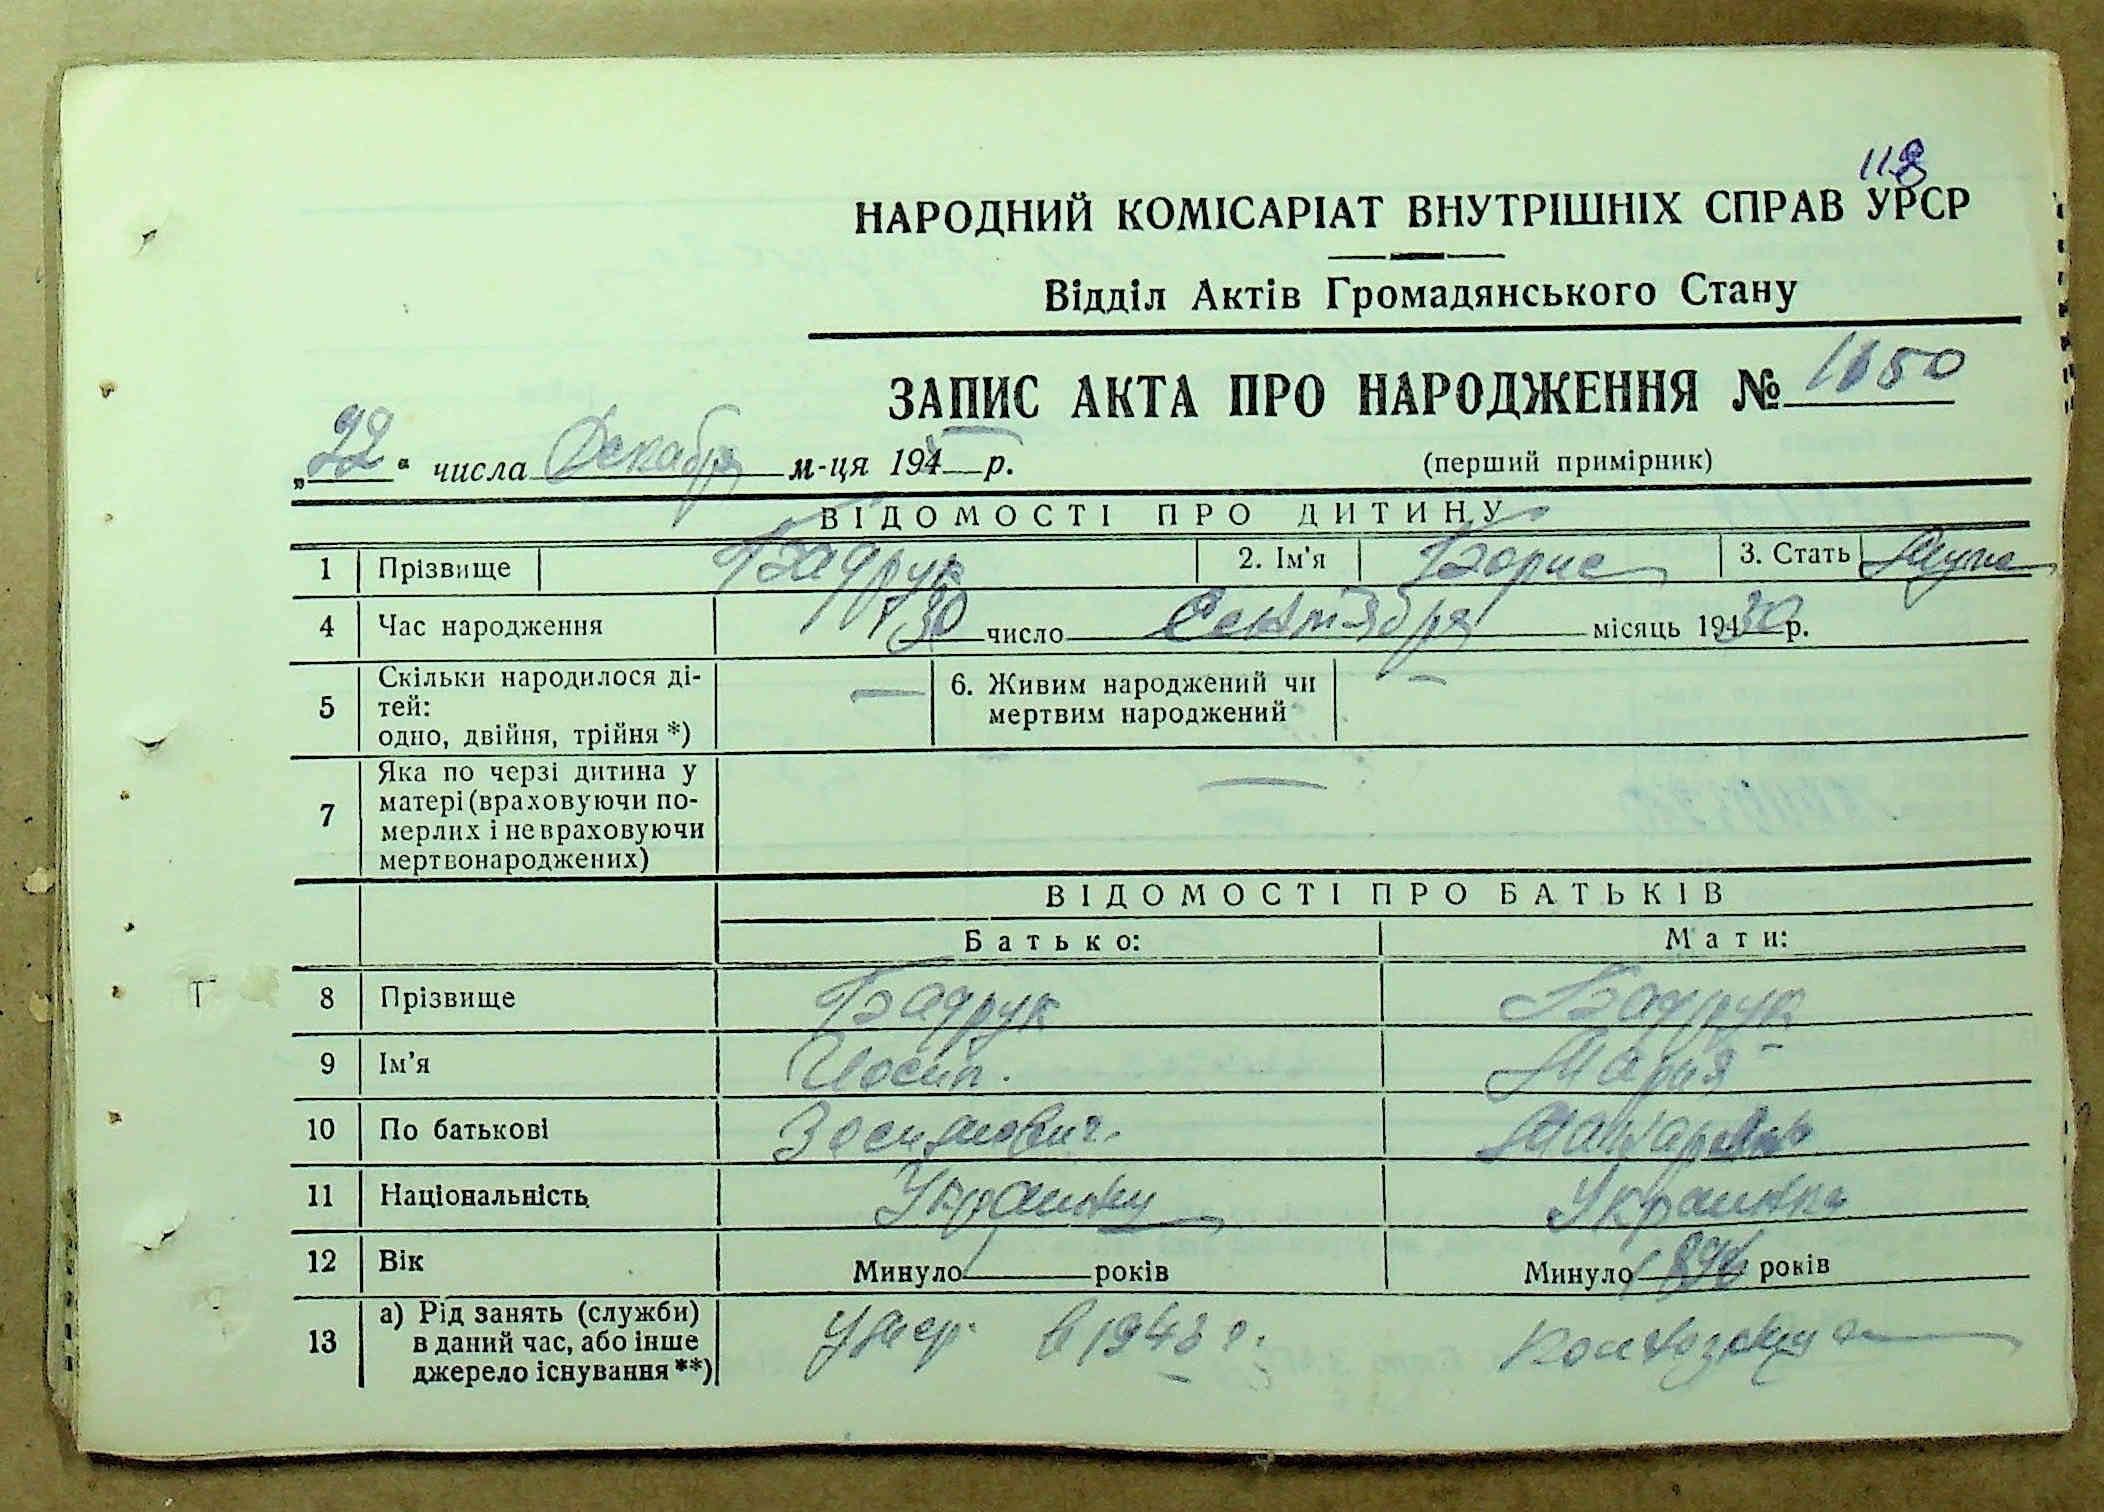 118
НАРОДНИЙ КОМІСАРІАТ ВНУТРІШНІХ СПРАВ УРСР
Відділ Актів Громадянського Стану
ЗАПИС АКТА ПРО НАРОДЖЕННЯ № 1150
„22“ числа Декабря м-ця 194 р.
(перший примірник)
ВІДОМОСТІ ПРО ДИТИНУ
1 Прізвище Бадрук 2. Ім'я Борис 3. Стать Муж
4 Час народження 30 число Сентября місяць 1930 р.
5 Скільки народилося ді-
тей:
одно, двійня, трійня *) — 6. Живим народжений чи
мертвим народжений —
7 Яка по черзі дитина у
матері (враховуючи по-
мерлих і не враховуючи
мертвонароджених) —
ВІДОМОСТІ ПРО БАТЬКІВ
Батько: Мати:
8 Прізвище Бадрук Бадрук
9 Ім'я Иосип. Мария
10 По батькові Зосимович.
11 Національність Украинец Украинка
12 Вік Минуло років Минуло років
13 а) Рід занять (служби)
в даний час, або інше
джерело існування **) Умер. в 1943 г.